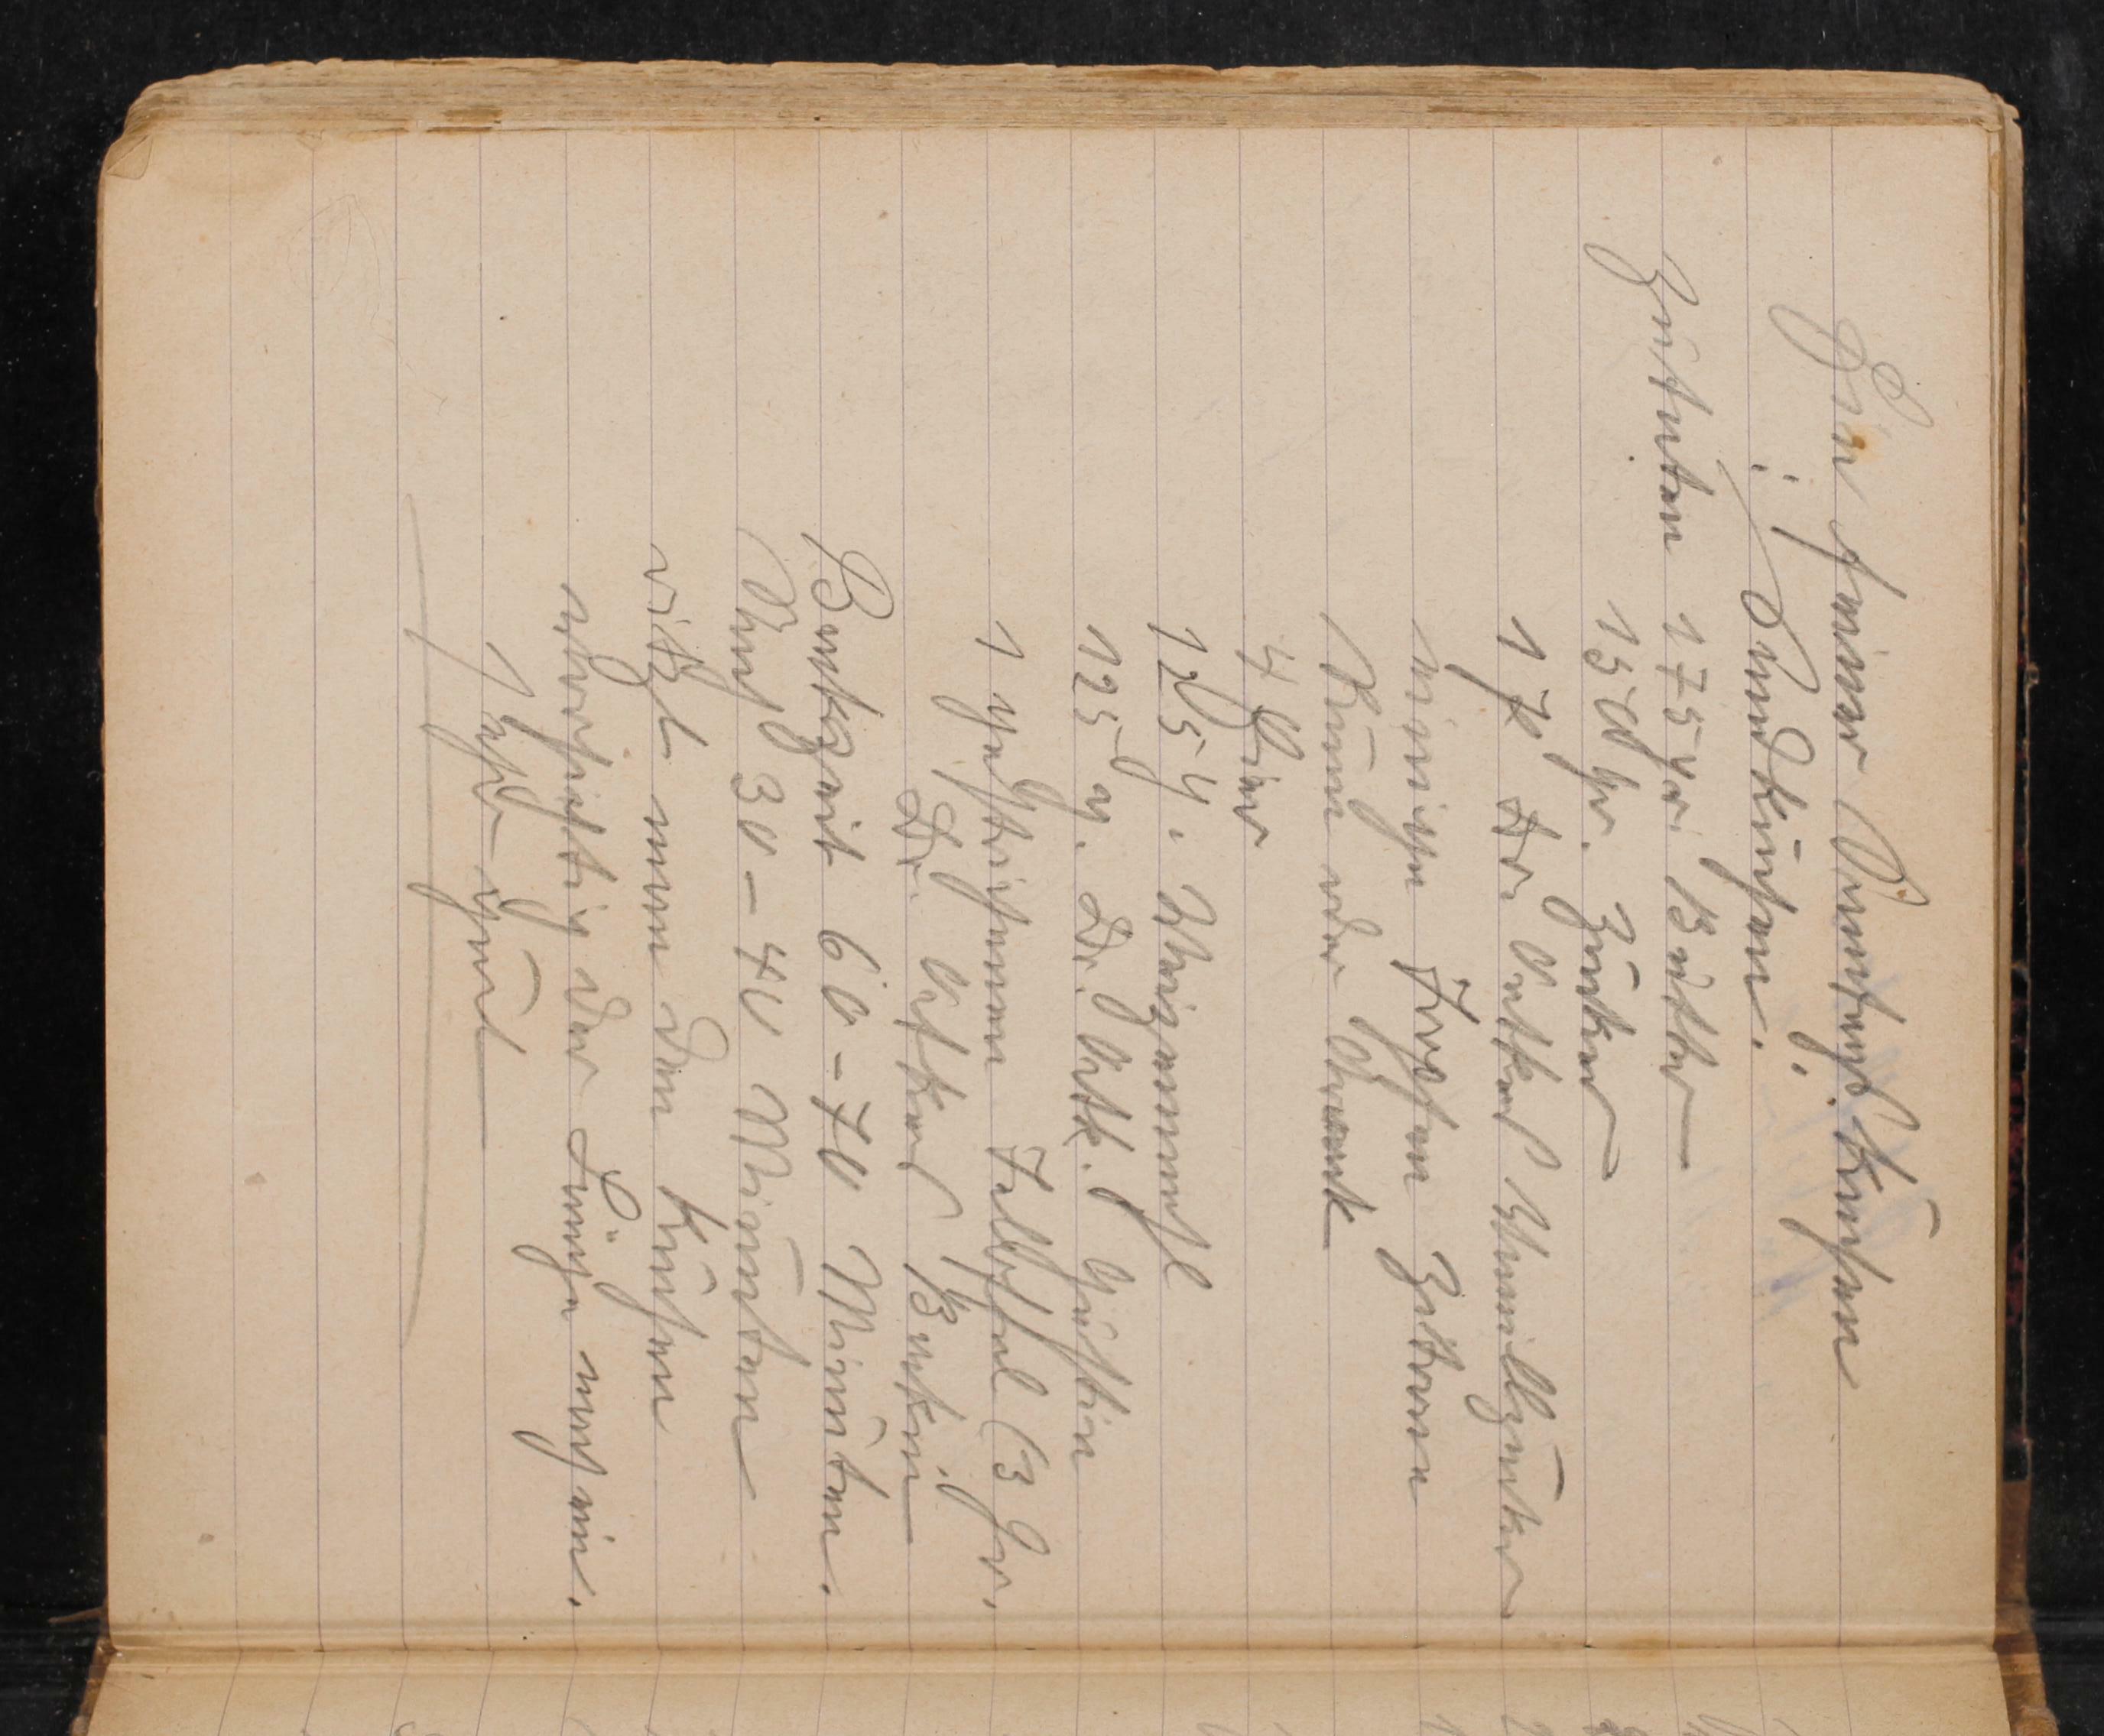 Ein feiner Namstags-Kuchen
! Sandkuchen. !
Zutaten 175 gr. Butter
150 gr. Zucker
1 P. Dr. Oetker Vanillzucker
einige Tropfen Zitron
Rum oder Arrack
4 Eier
125 g. Weizenmehl
125 g. Dr. Oetk. Gustin
1 gestrichenen Teelöffel (3 gr.
Dr. Oetker Backin
Backzeit 60-70 Minuten.
Nach 30-40 Minuten
ritzt man den Kuchen
vorsichtig der Länge nach ein.
Sehr gut